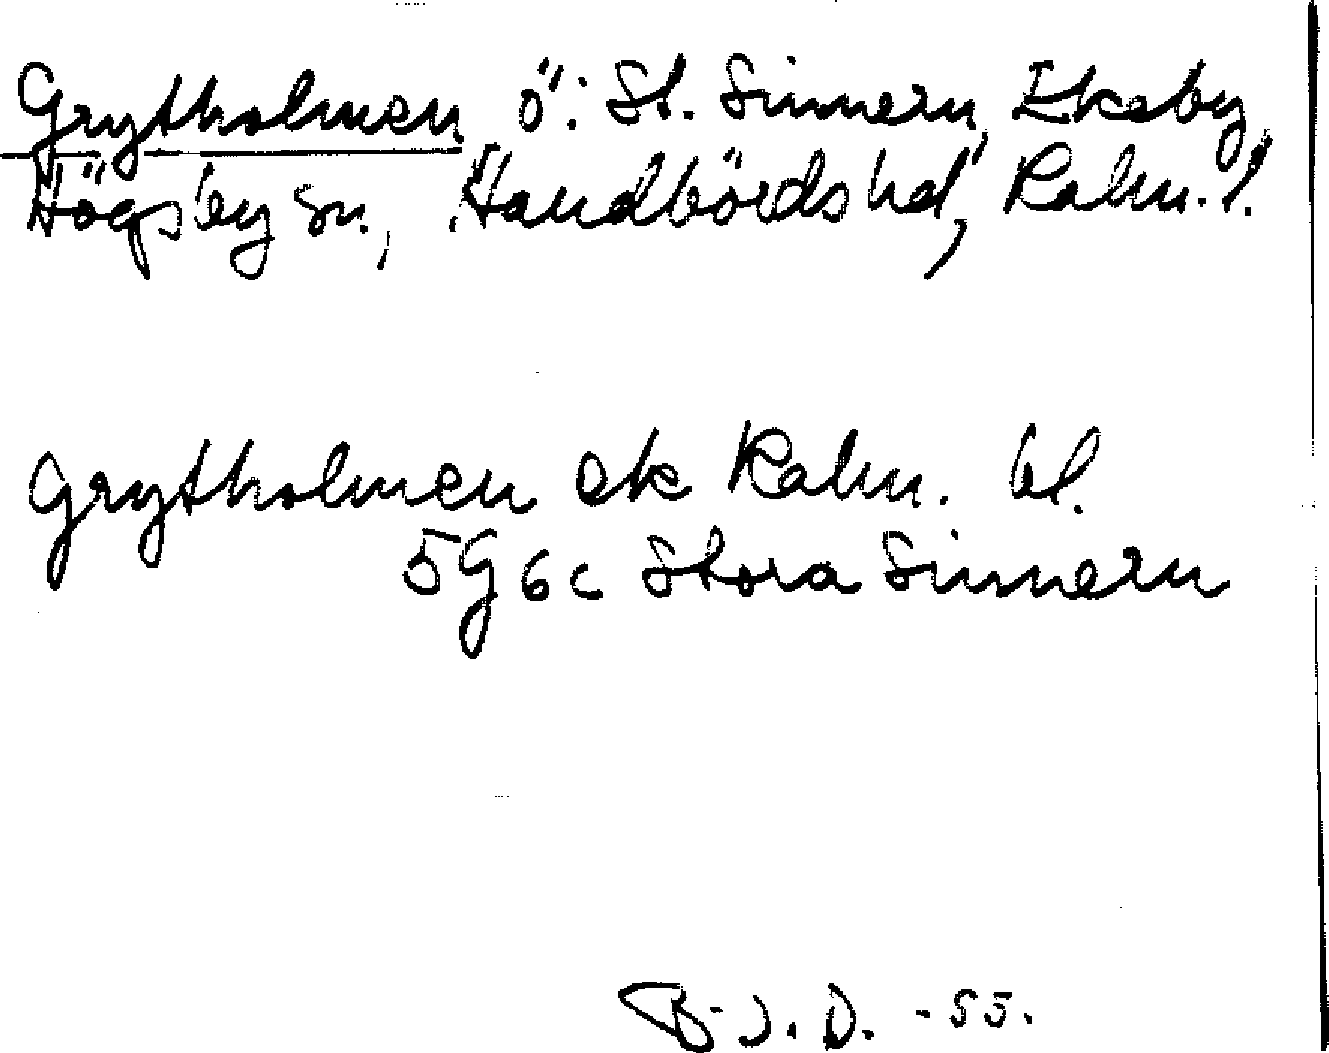 Grytholmen ö: St. Sinnern, Ekeby,
Högsby sn., Handbörds hd, Kalm. l.
Grytholmen ek Kalm. bl.
5G6c Stora Sinnern
B-J. D. -55.